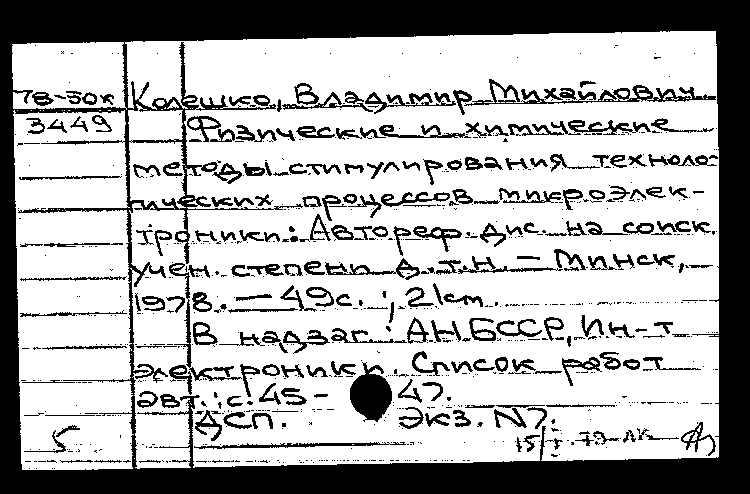 78-50к Колешко, Владимир Михайлович.
3449 Физические и химические
методы стимулирования техноло-
гических процессов микроэлек-
троники: Автореф. дис. на соиск.
учен. степени д.т.н. — Минск,
1978. — 49с. ; 21cm.
В надзаг.: АН БССР, Ин-т
электроники. Список работ
авт.: с. 45-47.
ДСП. Экз. N7.
5 15/I-79-ЛК